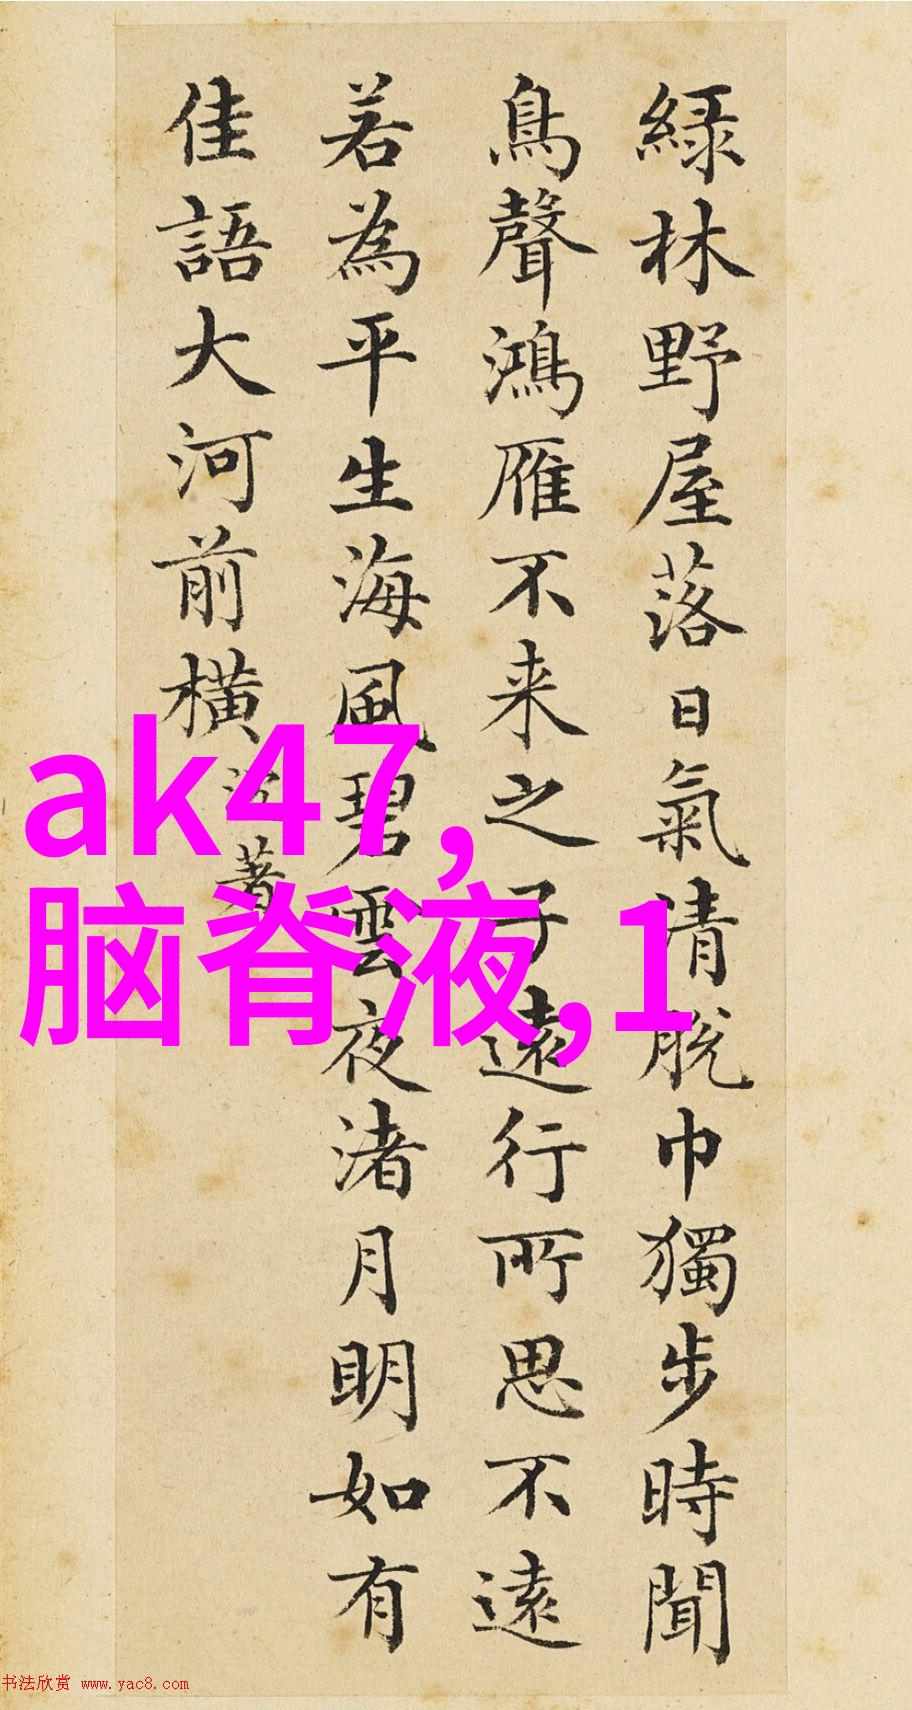 綠林野屋落日氣清脫巾獨步時聞
鳥聲鴻雁不来之子遠行所思不遠
若為平生海風碧雲夜渚月明如有
佳語大河前橫 沈著
ak47,
脑脊液,1
书法欣赏 www.yac8.com